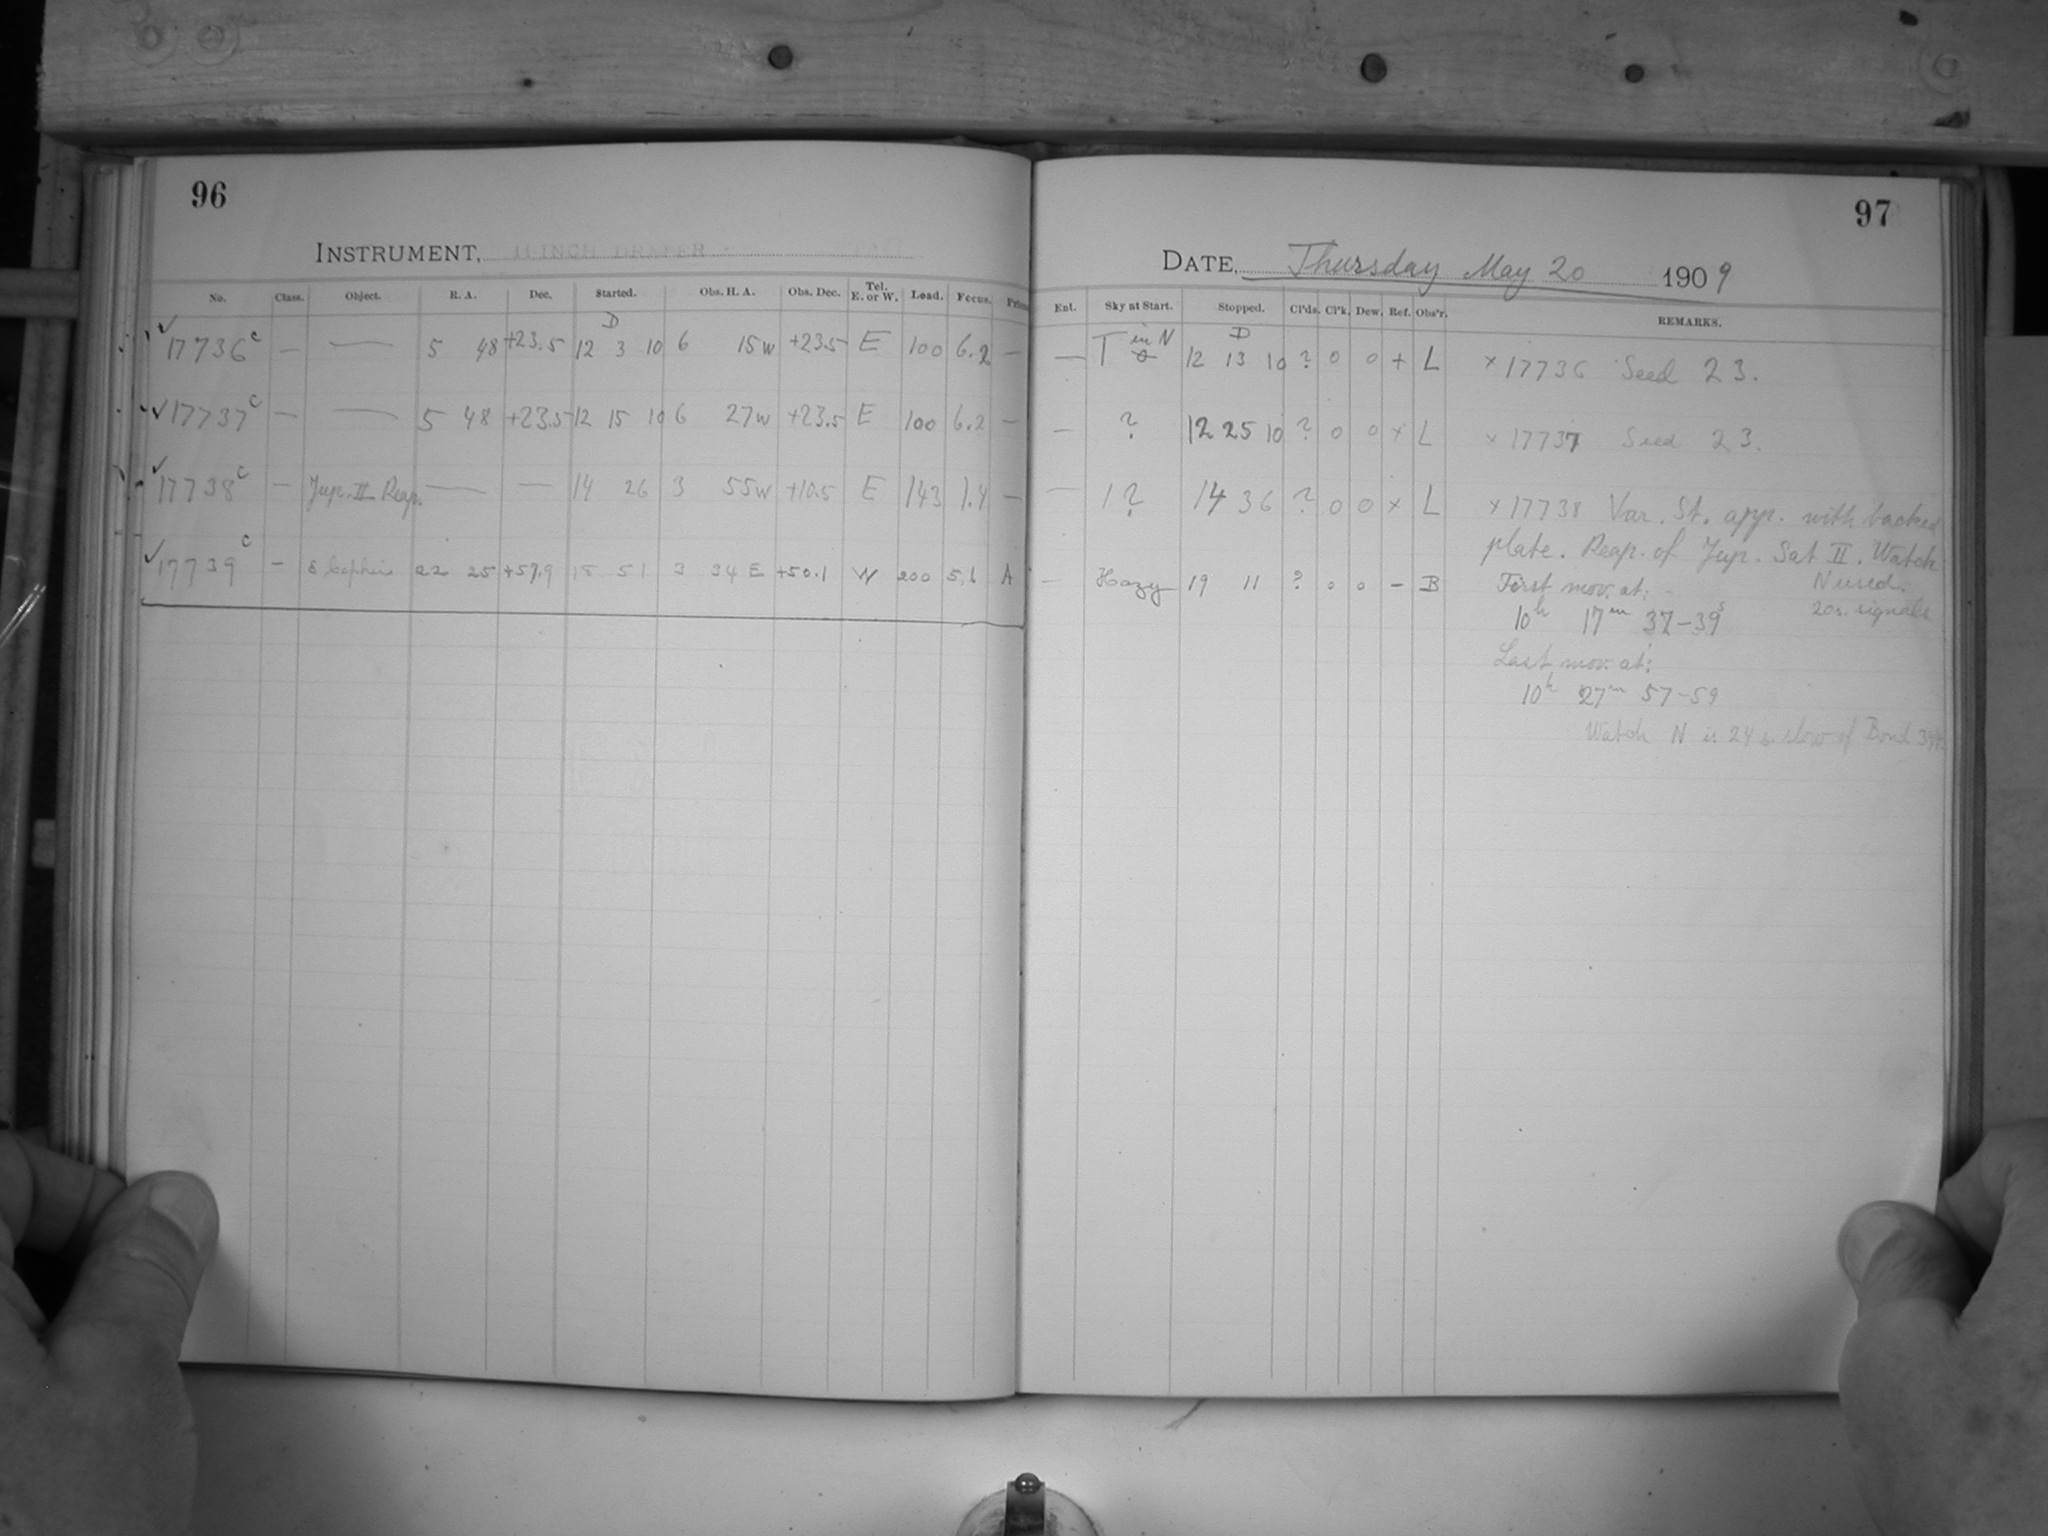 96
INSTRUMENT, 11 INCH DRAPER
No. Class. Object. R. A. Dec. Started. Obs. H. A. Obs. Dec. Tel. E. or W. Load. Focus.
D
17736 c — — 5 48 +23.5 12 3 10 6 15 W +23.5 E 100 6.2 —
17737 c — — 5 48 +23.5 12 15 10 6 27 W +23.5 E 100 6.2 —
17738 c — Jup. II Reap. — — 14 26 3 55 W +10.5 E 143 1.4 —
17739 c — δ Cephei 22 25 +57.9 51 3 34 E +50.1 W 200 5.6 A
97
DATE, Thursday May 20 1909
Ent. Sky at Start. Stopped. Cl'ds. Cl'k. Dew. Ref. Obs'r. REMARKS.
D
— T in N 12 13 10 ? 0 0 + L × 17736 Seed 23.
— ? 12 25 10 ? 0 0 × L × 17737 Seed 23.
— 1? 14 36 ? 0 0 × L × 17738 Var. St. app. with backed
plate. Reap. of Jup. Sat II. Watch
— Hazy 19 11 ? 0 0 – B First mov. at: N used.
10h 17m 37–39s 20s. signals
Last mov. at:
10h 27m 57–59
Watch N is 24 s. slow of Bond